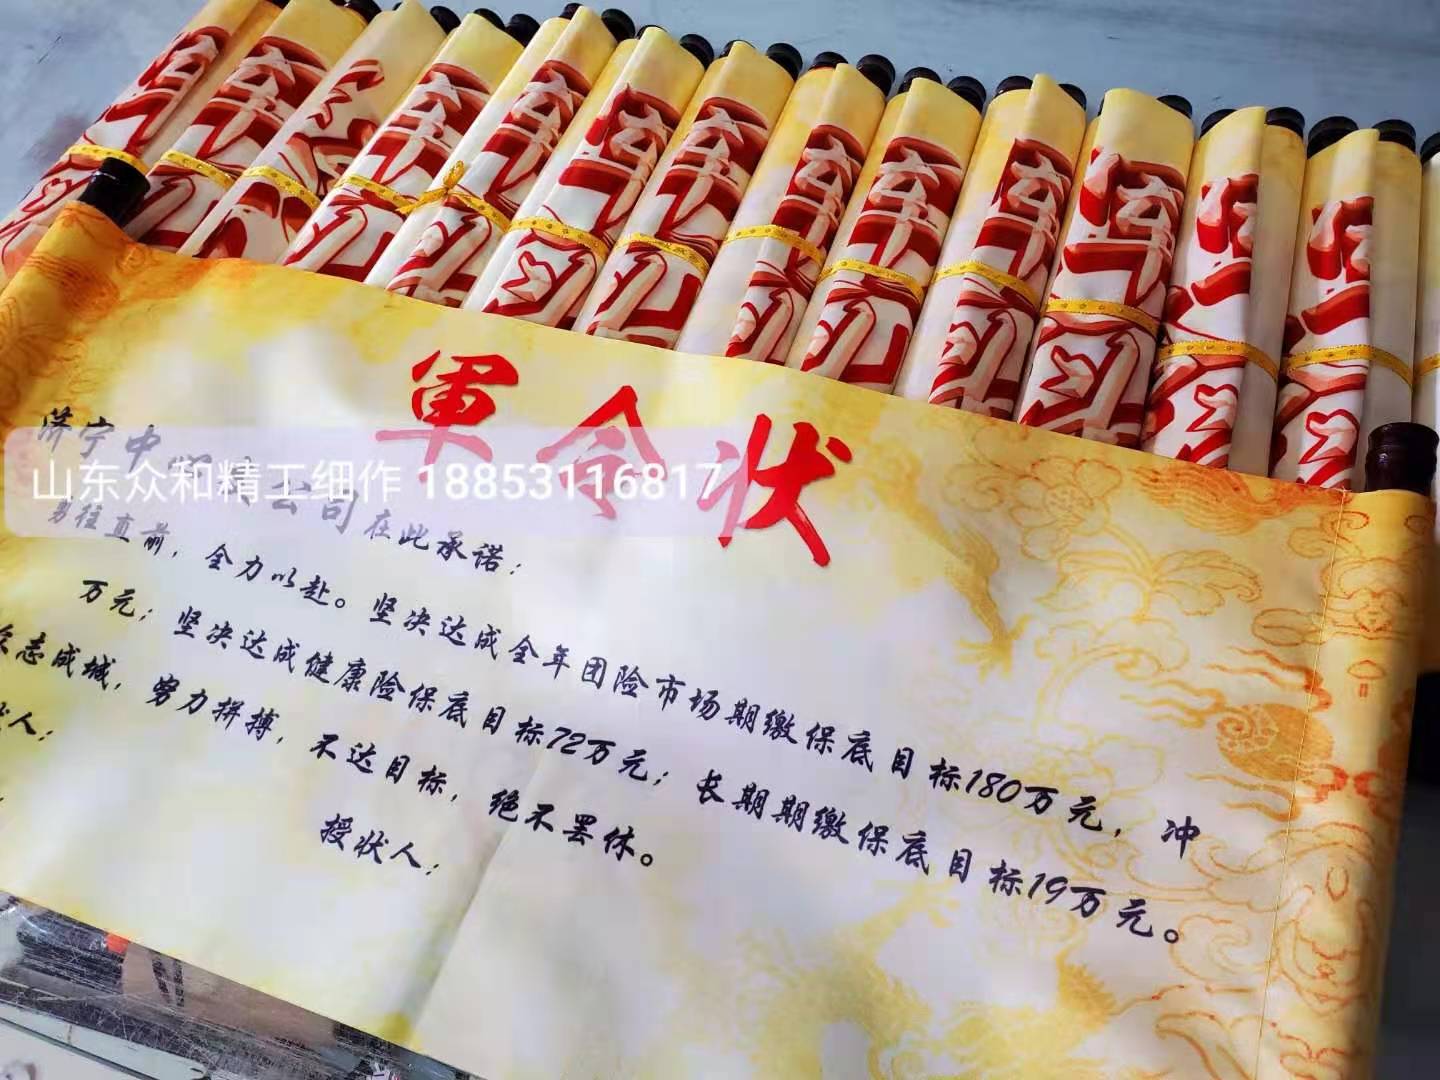 軍令状
济宁中
公司在此承诺：
山东众和精工细作 18853116817
勇往直前，全力以赴。坚决达成全年团险市场期缴保底目标180万元，冲
万元；坚决达成健康险保底目标72万元；长期期缴保底目标19万元。
众志成城，努力拼搏，不达目标，绝不罢休。
状人：
授状人：